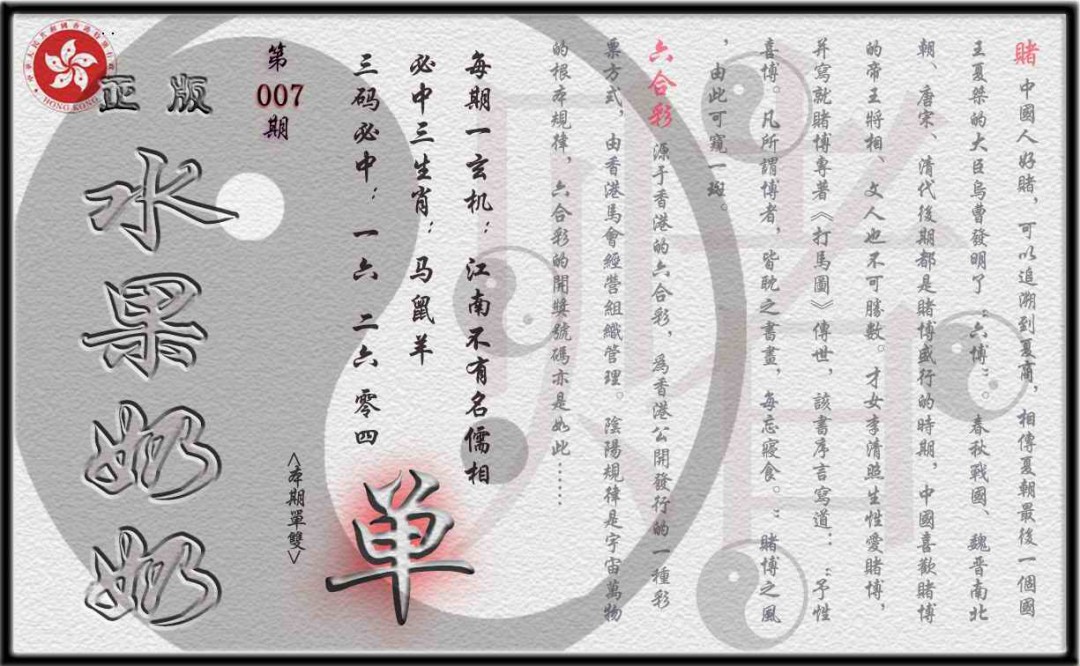 賭 中國人好賭，可以追溯到夏商，相傳夏朝最後一個國
王夏桀的大臣烏曹發明了“六博”。春秋戰國、魏晉南北
朝、唐宋、清代後期都是賭博盛行的時期，中國喜歡賭博
的帝王將相、文人也不可勝數。才女李清照生性愛賭博，
并寫就賭博專著《打馬圖》傳世，該書序言寫道：“予性
喜博。凡所謂博者，皆耽之書畫，每忘寢食。”賭博之風
，由此可窺一斑。
六合彩 源于香港的六合彩，為香港公開發行的一種彩
票方式，由香港馬會經營組織管理。陰陽規律是宇宙萬物
的根本規律，六合彩的開獎號碼亦是如此……
每期一玄机：江南不有名儒相
必中三生肖：马鼠羊
三码必中：一六 二六 零四
单
<本期單雙>
第
007
期
正版
水果奶奶
HONG KONG